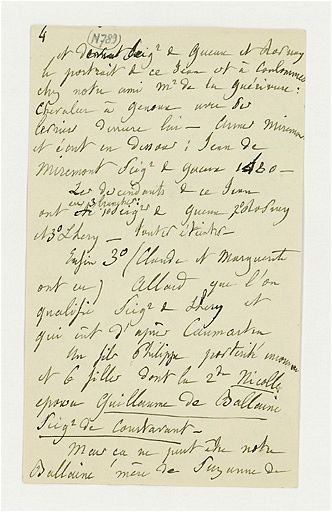 4
(N789)
et devint Seigr de Gueux et Rosnay
le portrait de ce Jean est à Coulommes
chez notre ami Mr de la Guérivière :
Chevalier à genoux avec
derrière lui — armes Miremont
et écrit en dessous : Jean de
Miremont Seigr de Gueux 1480 —
Les descendants de ce Jean
en 3 branches
ont été 1o Seigr de Gueux 2o Rosnay
et 3o Lhery — toutes éteintes —
Enfin 3o (Claude et Marguerite
ont eu) Allard que l'on
qualifie Seigr de Lhery et
qui eut d'après Caumartin
Un fils Philippe postérité inconnue
et 6 filles dont la 2de Nicolle
épousa Guillaume de Ballaine
Seigr de Courtavant —
Mais ça ne peut être notre
Ballaine mère de Suzanne de